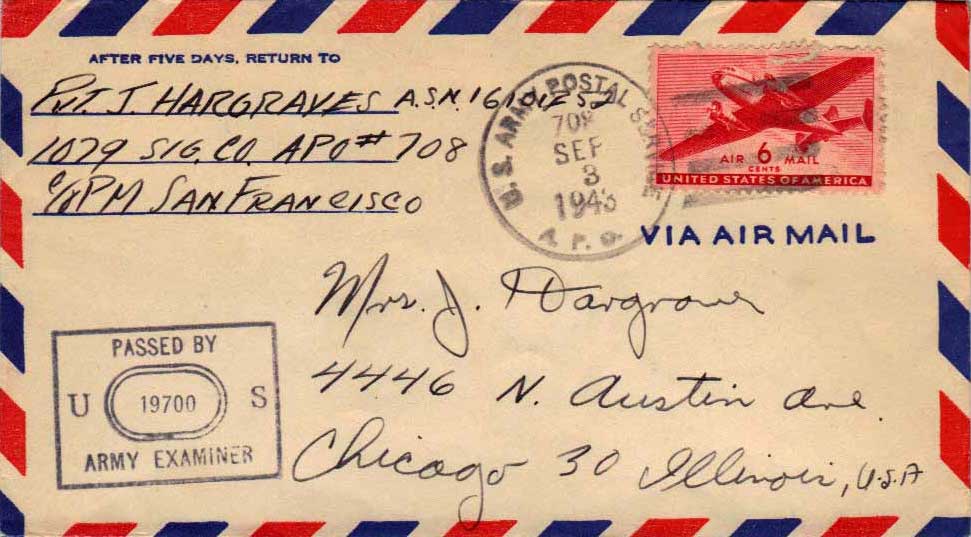 AFTER FIVE DAYS, RETURN TO
PVT J. HARGRAVES A.S.N.
1079 SIG. CO. APO# 708
C/O PM SAN FRANCISCO
U.S. ARMY POSTAL SERVICE
708
SEP
3
1943
A.P.O.
AIR 6 MAIL
CENTS
UNITED STATES OF AMERICA
VIA AIR MAIL
Mrs. J. Hargraves
4446 N. Austin Ave.
Chicago 30 Illinois, U.S.A
PASSED BY
U 19700 S
ARMY EXAMINER